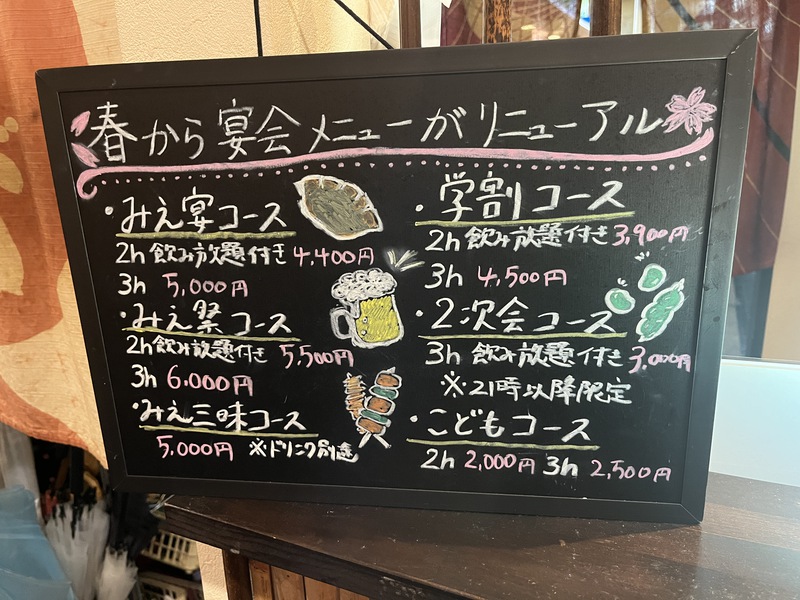 春から宴会メニューがリニューアル
・みえ宴コース
2h 飲み放題付き 4,400円
3h 5,000円
・みえ祭コース
2h 飲み放題付き 5,500円
3h 6,000円
・みえ三昧コース
5,000円 ※ドリンク別途
・学割コース
2h 飲み放題付き 3,900円
3h 4,500円
・2次会コース
3h 飲み放題付き 3,000円
※21時以降限定
・こどもコース
2h 2,000円 3h 2,500円